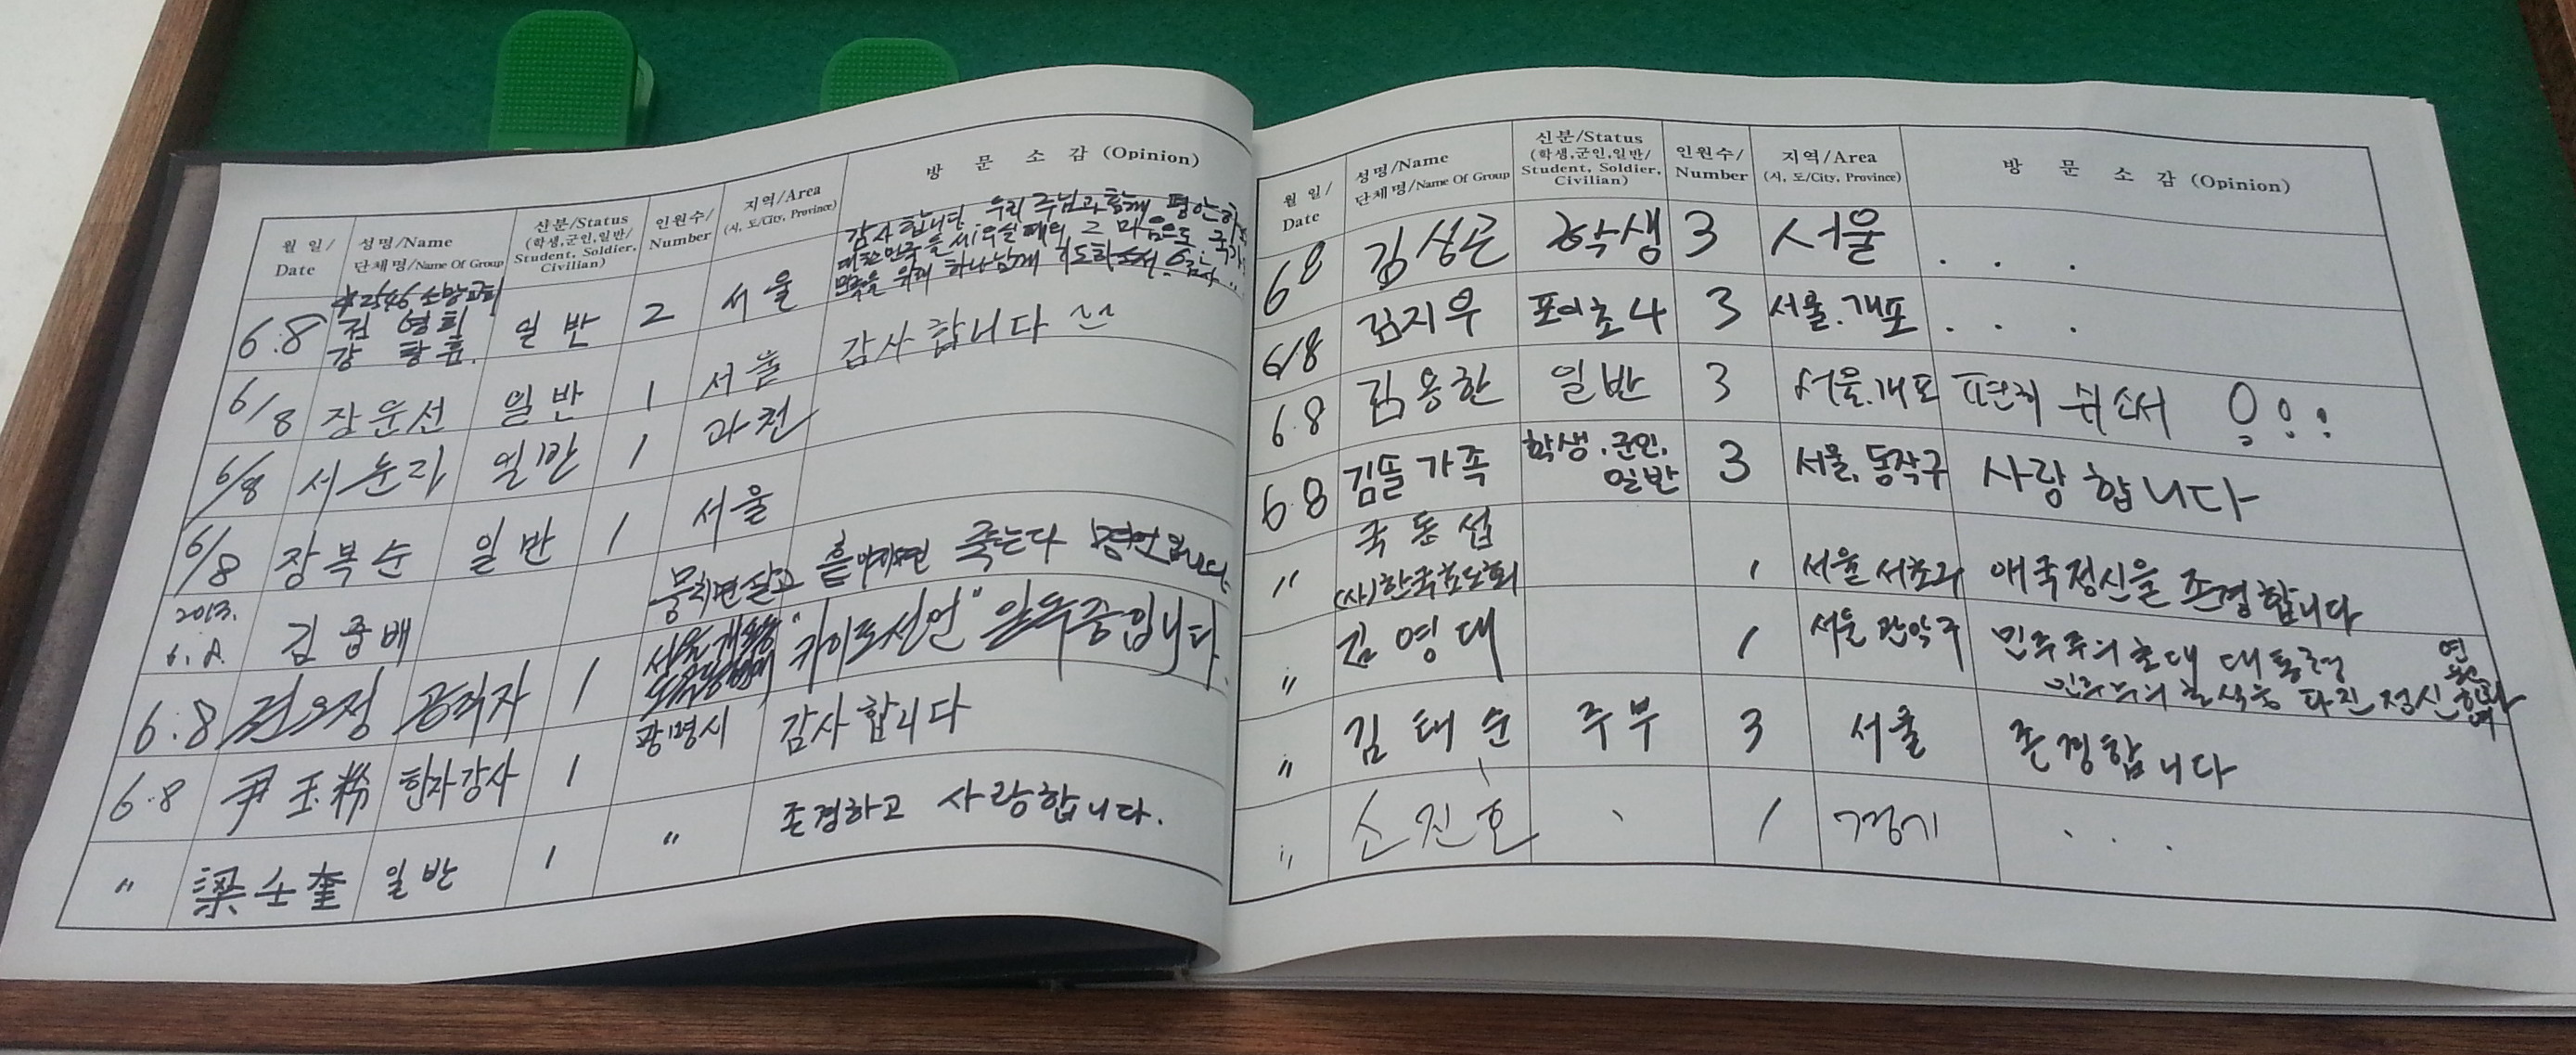 월 일/ Date 성명/Name 단체명/Name Of Group 신분/Status (학생,군인,일반/ Student, Soldier, Civilian) 인원수/ Number 지역/Area (시, 도/City, Province) 방 문 소 감 (Opinion)
6.8 소망교회
영희
강 일 반 2 서 울 감사합니다. 우리 주님과 함께
그 마음으로
위해 하나님께
6/8 장운선 일 반 1 서울 감사합니다 ^^
6/8 서 일반 1 과천
6/8 장복순 일 반 1 서울
2013. 6. 8. 김중배 뭉치면 살고 흩어지면 죽는다 명언입니다.
6.8 공직자 1 "카이로선언" 일독중입니다.
6.8 尹玉粉 한자강사 1 광명시 감사합니다
〃 梁壬奎 일반 1 〃 존경하고 사랑합니다.
월 일/ Date 성명/Name 단체명/Name Of Group 신분/Status (학생,군인,일반/ Student, Soldier, Civilian) 인원수/ Number 지역/Area (시, 도/City, Province) 방 문 소 감 (Opinion)
6 8 김성근 학생 3 서울 . . .
6/8 김지우 포이초4 3 서울.개포 . . .
6.8 김용한 일반 3 서울.개포 편히 쉬소서
6.8 김뜰가족 학생.군인. 일반 3 서울, 동작구 사랑합니다
〃 국동섭
(사)한국효도회 1 서울 서초구 애국정신을 존경합니다
〃 김영대 1 서울 관악구 민주주의 초대 대통령
정신
〃 김태순 주부 3 서울 존경합니다
〃 신진호 1 경기 . . .